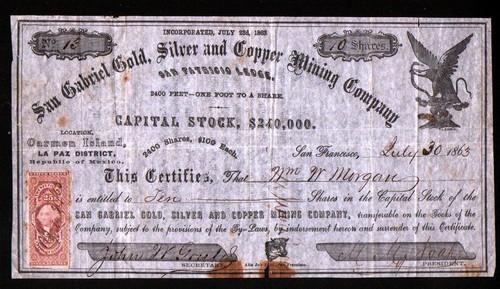 INCORPORATED, JULY 23d, 1863
No. 13
10 Shares.
San Gabriel Gold, Silver and Copper Mining Company
SAN PATRICIO LEDGE.
2400 FEET—ONE FOOT TO A SHARE.
CAPITAL STOCK, $240,000.
2400 Shares, $100 Each.
LOCATION,
Carmen Island,
LA PAZ DISTRICT,
Republic of Mexico.
San Francisco, July 30 1863
This Certifies, That Wm W Morgan
is entitled to Ten Shares in the Capital Stock of the
SAN GABRIEL GOLD, SILVER AND COPPER MINING COMPANY, transferable on the Books of the
Company, subject to the provisions of the By-Laws, by indorsement hereon and surrender of this Certificate.
25
John W
SECRETARY.
PRESIDENT.